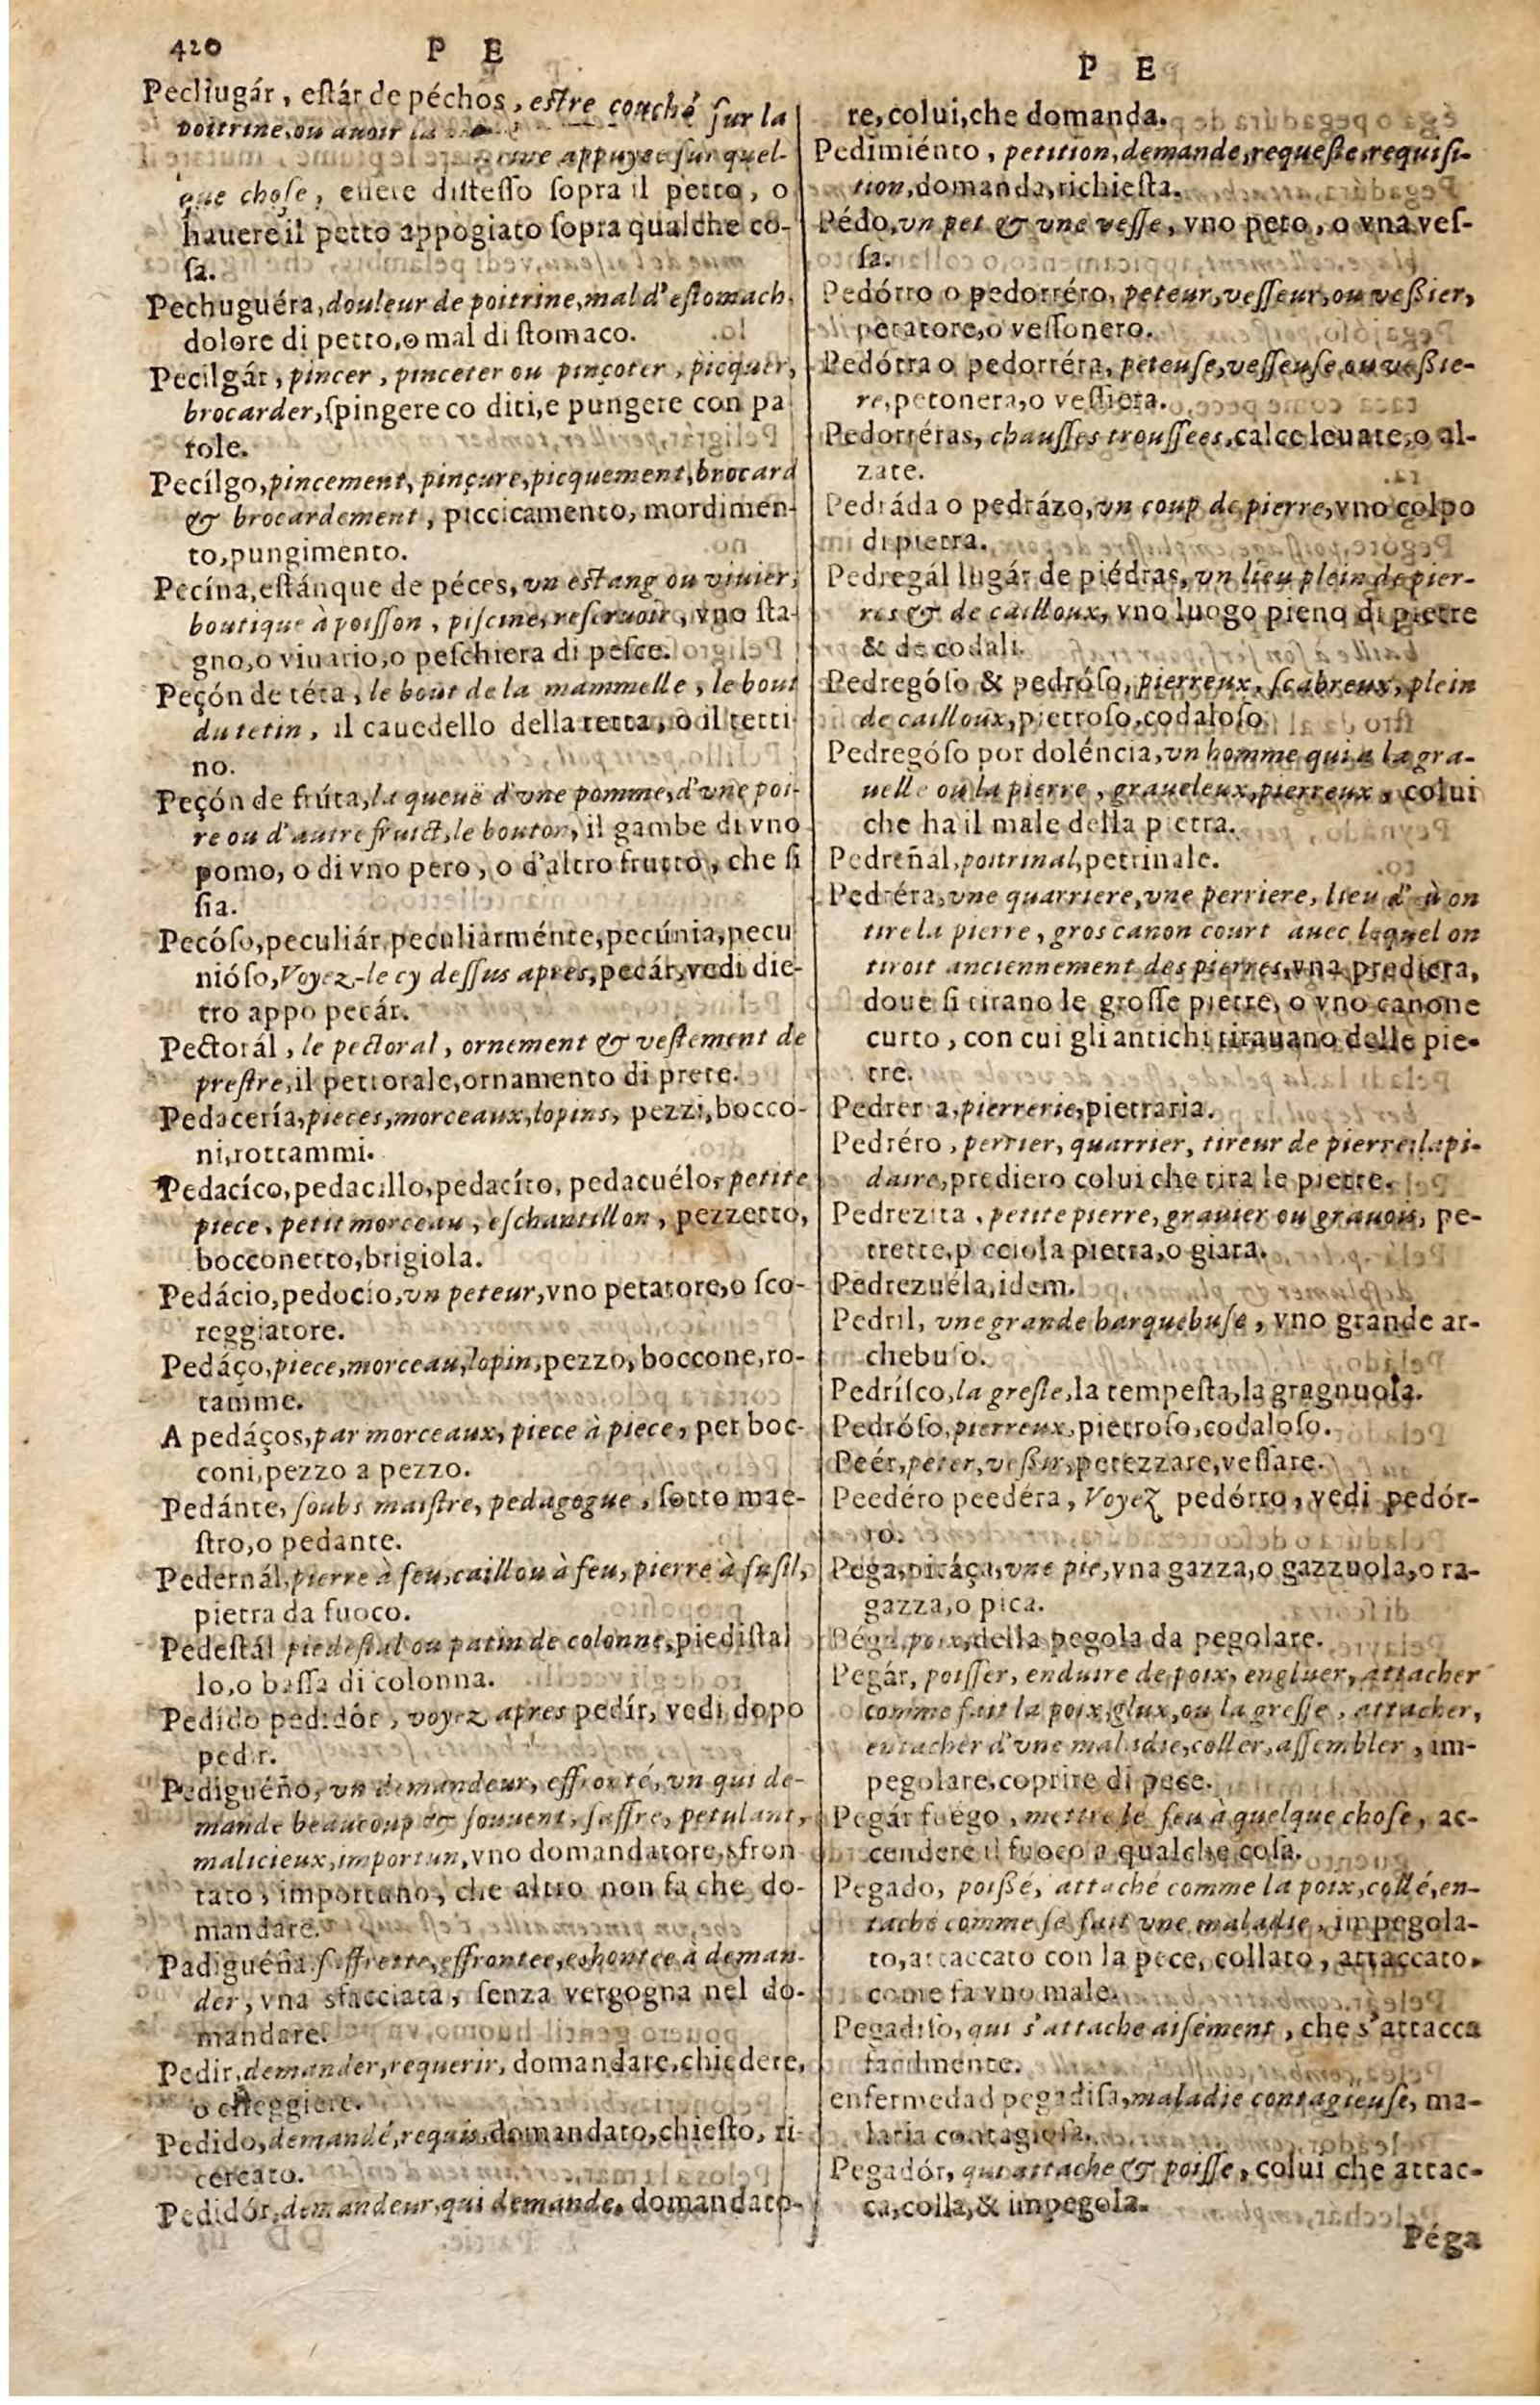 420 P E
Pechugár, eſtár de péchos, eſtre couché ſur la
poitrine, ou auoir la
appuyee ſur quel-
que choſe, eſſere diſteſſo ſopra il petto, o
hauere il petto appogiato ſopra qualche co-
ſa.
Pechuguéra, douleur de poitrine, mal d'eſtomach,
dolore di petto, o mal di ſtomaco.
Pecilgár, pincer, pinceter ou pinçoter, picquer,
brocarder, ſpingere co diti, e pungere con pa
role.
Pecílgo, pincement, pinçure, picquement, brocard
& brocardement, piccicamento, mordimen-
to, pungimento.
Pecína, eſtánque de péces, vn eſtang ou viuier,
boutique à poiſſon, piſcine, reſeruoir, vno ſta-
gno, o viuario, o peſchiera di peſce.
Peçón de téta, le bout de la mammelle, le bout
du tetin, il cauedello della tetta, o il tetti
no.
Peçón de frúta, la queuë d'vne pomme, d'vne poi-
re ou d'autre fruict, le bouton, il gambe di vno
pomo, o di vno pero, o d'altro frutto, che ſi
ſia.
Pecóſo, peculiár, peculiarménte, pecúnia, pecu
nióſo, Voyez-le cy deſſus apres, pecár, vedi die-
tro appo pecár.
Pectorál, le pectoral, ornement & veſtement de
preſtre, il pettorale, ornamento di prete.
Pedacería, pieces, morceaux, lopins, pezzi, bocco-
ni, rottammi.
Pedacíco, pedacillo, pedacíto, pedacuélo, petite
piece, petit morceau, eſchantillon, pezzetto,
bocconetto, brigiola.
Pedácio, pedocío, vn peteur, vno petatore, o ſco-
reggiatore.
Pedáço, piece, morceau, lopin, pezzo, boccone, ro-
tamme.
A pedáços, par morceaux, piece à piece, per boc-
coni, pezzo a pezzo.
Pedánte, ſoubs maiſtre, pedagogue, ſotto mae-
ſtro, o pedante.
Pedernál, pierre à feu, caillou à feu, pierre à fuſil,
pietra da fuoco.
Pedeſtál piedeſtal ou patin de colonne, piediſtal
lo, o baſſa di colonna.
Pedído pedidór, voyez apres pedír, vedi dopo
pedir.
Pediguéño, vn demandeur, effronté, vn qui de-
mande beaucoup & ſouuent, ſaffre, petulant,
malicieux, importun, vno domandatore, sfron
tato, importuno, che altro non fa che do-
mandare.
Padiguéña effrontee, eshontee à deman-
der, vna sfacciata, ſenza vergogna nel do-
mandare.
Pedir, demander, requerir, domandare, chiedere,
o
Pedido, demandé, requis, domandato, chieſto, ri-
cercato.
Pedidór, demandeur, qui demande, domandato-
P E
re, colui, che domanda.
Pedimiénto, petition, demande, requeſte, requiſi-
tion, domanda, richieſta.
Pédo, vn pet & vne veſſe, vno peto, o vna veſ-
ſa.
Pedórro o pedorréro, peteur, veſſeur, ou veßier,
petatore, o veſſonero.
Pedórra o pedorréra, peteuſe, veſſeuſe, ou veßie-
re, petonera, o veſſiera.
Pedorréras, chauſſes trouſſees, calce leuate, o al-
zate.
Pedráda o pedrázo, vn coup de pierre, vno colpo
di pietra.
Pedregál lugár de piédras, vn lieu plein de pier-
res & de cailloux, vno luogo pieno di pietre
& de codali.
Pedregóſo & pedróſo, pierreux, ſcabreux, plein
de cailloux, pietroſo, codaloſo.
Pedregóſo por doléncia, vn homme qui a la gra-
uelle ou la pierre, graueleux, pierreux, colui
che ha il male della pietra.
Pedreñal, poitrinal, pettinale.
Pedréra, vne quarriere, vne perriere, lieu d'ù on
tire la pierre, gros canon court auec lequel on
tiroit anciennement des pierres, vna prediera,
doue ſi tirano le groſſe pietre, o vno canone
curto, con cui gli antichi tirauano delle pie-
tre.
Pedrer a, pierrerie, pietraria.
Pedréro, perrier, quarrier, tireur de pierre, lapi-
daire, prediero colui che tira le pietre.
Pedrezita, petite pierre, grauier ou grauois, pe-
trette, picciola pietra, o giara.
Pedrezuéla, idem.
Pedril, vne grande harquebuſe, vno grande ar-
chebuſo.
Pedríſco, la greſle, la tempeſta, la gragnuola.
Pedróſo, pierreux, pietroſo, codaloſo.
Peér, peter, veßir, petezzare, veſſare.
Peedéro peedéra, Voyez pedórro, vedi pedór-
ro.
Pega, picáça, vne pie, vna gazza, o gazzuola, o ra-
gazza, o pica.
Péga, poix, della pegola da pegolare.
Pegár, poiſſer, enduire de poix, engluer, attacher
comme fait la poix, glux, ou la greſſe, attacher,
entacher d'vne maladie, coller, aſſembler, im-
pegolare, coprire di pece.
Pegár fuégo, mettre le feu à quelque choſe, ac-
cendere il fuoco a qualche coſa.
Pegado, poißé, attaché comme la poix, collé, en-
taché comme ſe fait vne maladie, impegola-
to, attaccato con la pece, collato, attaccato.
come fa vno male.
Pegadiſo, qui s'attache aiſément, che s'attacca
facilmente.
enfermedad pegadiſa, maladie contagieuſe, ma-
laria contagioſa.
Pegadór, qui attache & poiſſe, colui che attac-
ca, colla, & impegola.
Péga